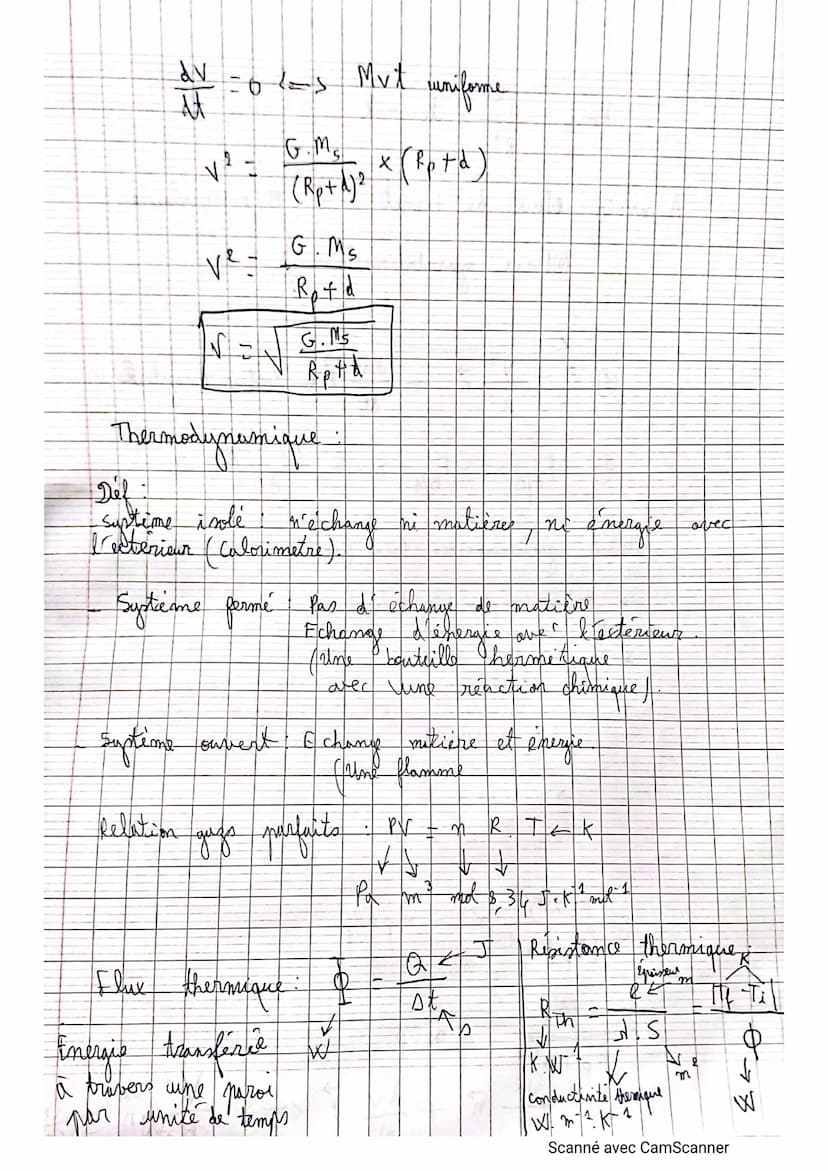 dV/dt = 0 <=> Mvt uniforme
V² = G.Ms/(Rp+d)² x (Rp+d)
V² = G.Ms/Rp+d
V = √(G.Ms/Rp+d)
Thermodynamique :
Déf :
- Système isolé : n'échange ni matières, ni énergie avec
l'extérieur (Calorimetre).
- Système fermé : Pas d'échange de matière
Echange d'énergie avec l'extérieur.
(Une bouteille hermétique
avec une réaction chimique).
- Système ouvert : Echange matière et énergie.
(Une flamme
Relation gazs parfaits : PV = n R. T ← K
Pa m³ mol 8,34 J.K⁻¹ mol⁻¹
Flux thermique : Φ = Q/Δt
J
s
W
Energie transférée
à travers une paroi
par unité de temps
Résistance thermique
Rth = e/λ.S = |Tf-Ti|/Φ
épaisseur m
K
K.W⁻¹
m²
W
conductivité thermique
W.m⁻¹.K⁻¹
Scanné avec CamScanner